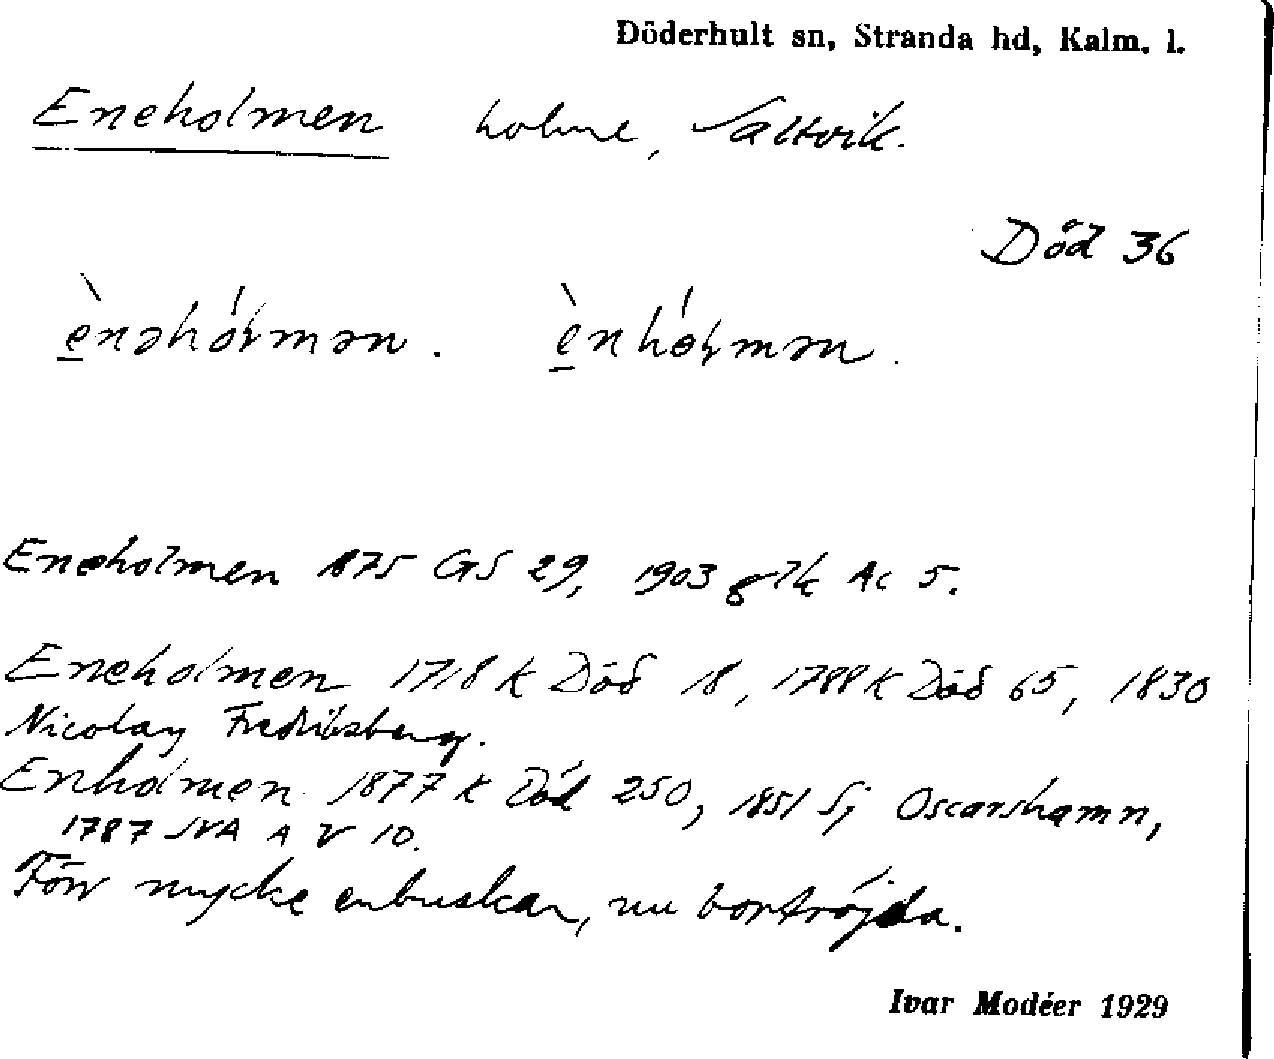 Döderhult sn, Stranda hd, Kalm. l.
Eneholmen holme, Saltvik.
Död 36
ènəhóɫmən. ènhóɫmən.
Eneholmen 1875 GS 29, 1903 glk Ac 5.
Eneholmen 1718 K Död 18, 1788 K Död 65, 1830
Nicolay Fredriksberg.
Enholmen 1877 K Död 250, 1851 Sj Oscarshamn,
1787 SVA A V 10.
Förr mycke enbuskar, nu bortröjda.
Ivar Modéer 1929